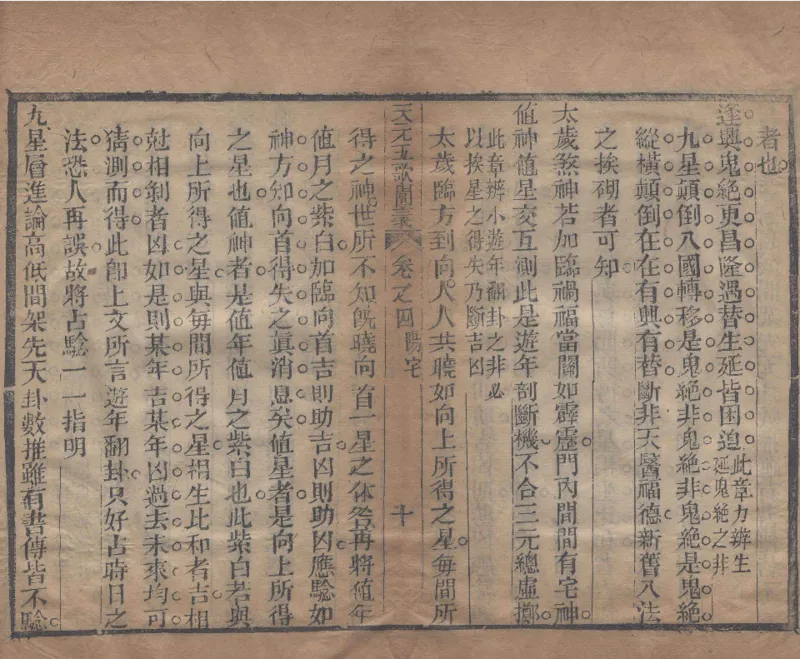 者也
逢興鬼絕更昌隆遇替生延皆困迫
此章力辨生
延鬼絕之非
九星顛倒八國轉移是鬼絕非鬼絕非鬼絕是鬼絕
縱橫顛倒在在有興有替斷非天醫福德新舊八法
之挨砌者可知
太歲煞神若加臨禍福當關如霹靂門內間間有宅神
值神値星交互測此是遊年剖斷機不合三元總虛擲
此章辨小遊年翻卦之非必
以挨星之得失乃斷吉凶
太歲臨方到向人人共曉如向上所得之星每間所
天元五歌闡義 卷之四 陽宅 十
得之神世所不知旣曉向首一星之休咎再將値年
值月之紫白加臨向首吉則助吉凶則助凶應驗如
神方知向首得失之眞消息矣值星者是向上所得
之星也值神者是値年値月之紫白也此紫白若與
向上所得之星與每間所得之星相生比和者吉相
尅相剝者凶如是則某年吉某年凶過去未來均可
猜測而得此卽上文所言遊年翻卦只好占時日之
法恐人再誤故將占驗一一指明
九星層進論高低間架先天卦數推雖有書傳皆不驗